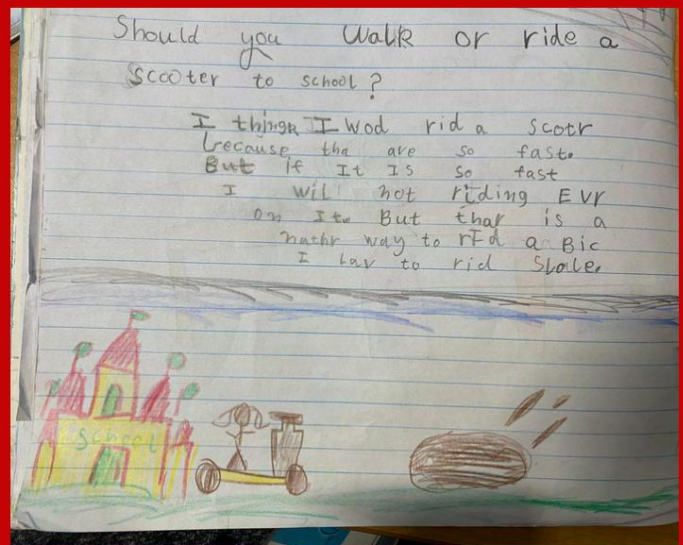 Should you Walk or ride a
Scooter to school?
I thingk I wod rid a scotr
because tha are so fast.
But if It Is so fast
I wil not riding Evr
on It. But thar is a
nathr way to rId a Bic
I lav to rid Slole.
School